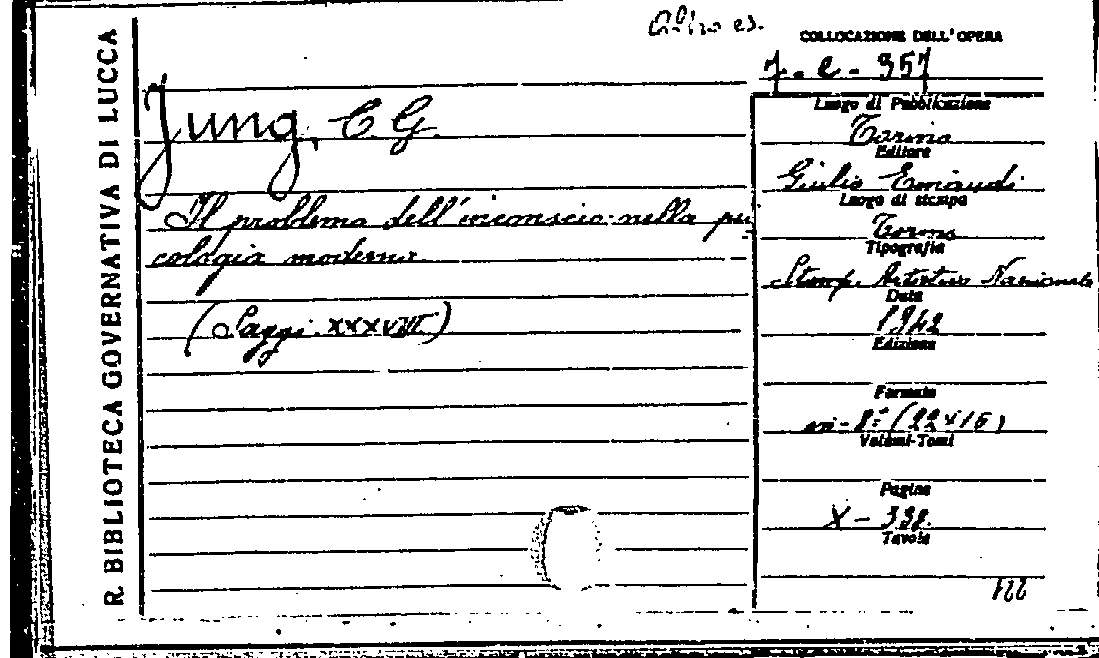 R. BIBLIOTECA GOVERNATIVA DI LUCCA
Altro es.
COLLOCAZIONE DELL'OPERA
7 - e - 357
Jung, C G.
Il problema dell'inconscio nella psi
cologia moderna.
(Saggi XXXVIII)
Luogo di Pubblicazione
Torino
Editore
Giulio Einaudi
Luogo di stampa
Torino
Tipografia
Stamp. Artistico Nazionale
Data
1942
Edizione
Formato
in-8° (22x16)
Volumi-Tomi
Pagine
X - 338.
Tavole